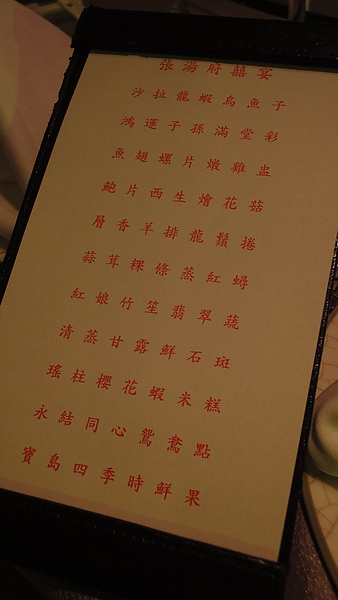 張游府囍宴
沙拉龍蝦烏魚子
鴻運子孫滿堂彩
魚翅螺片燉雞盅
鮑片西生燴花菇
層香羊排龍鬚捲
蒜茸粿條蒸紅蟳
紅娘竹笙翡翠蔬
清蒸甘露鮮石斑
瑤柱櫻花蝦米糕
永結同心鴛鴦點
寶島四季時鮮果